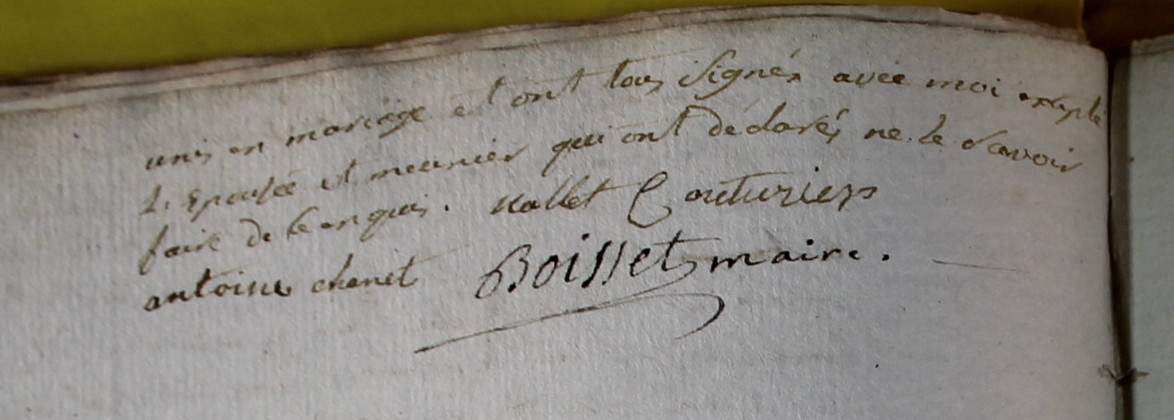 unis en mariage et ont tous signés avec moi excepté
L'Epousée et meunier qui ont déclarés ne le savoir
faire de ce enquis. Nallet Couturier
antoine chenet Boisset maire.